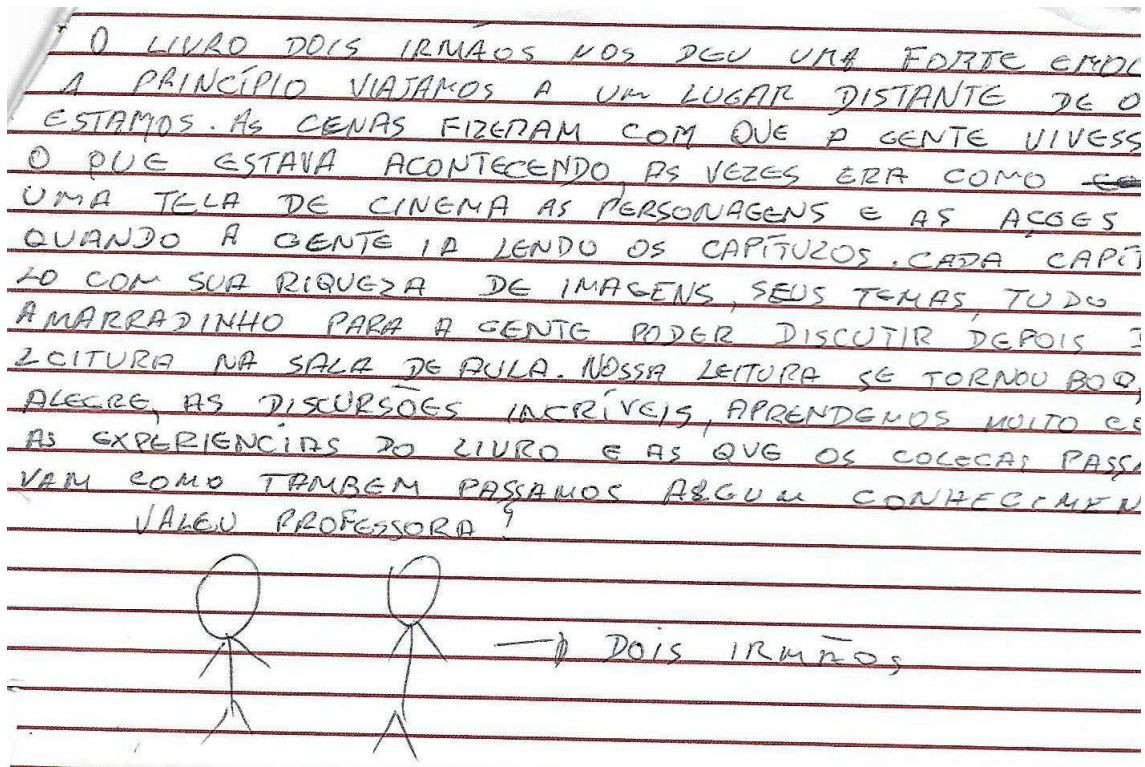 O LIVRO DOIS IRMÃOS NOS DEU UMA FORTE EMOC
A PRINCÍPIO VIAJAMOS A UM LUGAR DISTANTE DE O
ESTAMOS. AS CENAS FIZERAM COM QUE A GENTE VIVESS
O QUE ESTAVA ACONTECENDO, AS VEZES ERA COMO
UMA TELA DE CINEMA AS PERSONAGENS E AS AÇOES
QUANDO A GENTE IA LENDO OS CAPÍTULOS. CADA CAPÍT
LO COM SUA RIQUEZA DE IMAGENS, SEUS TEMAS, TUDO
AMARRADINHO PARA A GENTE PODER DISCUTIR DEPOIS
LEITURA NA SALA DE AULA. NOSSA LEITURA SE TORNOU BOA,
ALEGRE, AS DISCURSÕES INCRÍVEIS, APRENDEMOS MUITO
AS EXPERIENCIAS DO LIVRO E AS QUE OS COLEGAS PASSA
VAM COMO TAMBEM PASSAMOS ALGUM CONHECIMEN
VALEU PROFESSORA!
→ DOIS IRMÃOS